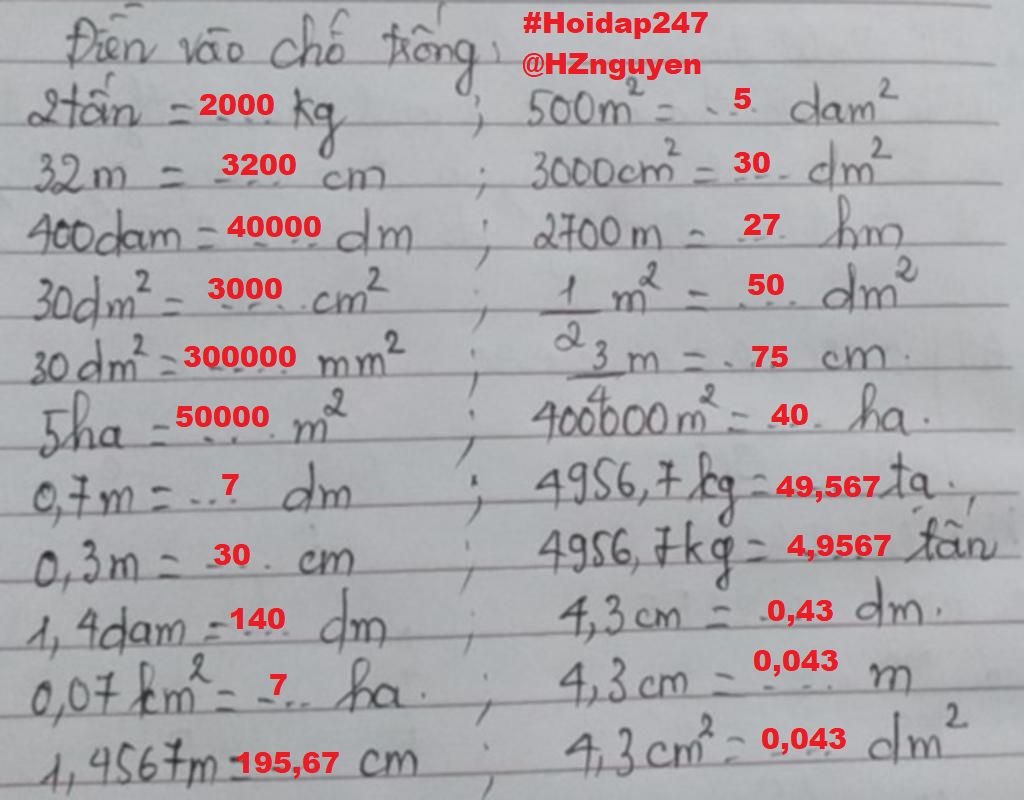 Điền vào chỗ trống: #Hoidap247
@HZnguyen
2 tấn = 2000 kg ; 500m² = 5 dam²
32m = 3200 cm ; 3000cm² = 30 dm²
400dam = 40000 dm ; 2700m = 27 hm
30dm² = 3000 cm² ; 1/2 m² = 50 dm²
30dm² = 300000 mm² ; 3/4 m = 75 cm.
5ha = 50000 m² ; 400000m² = 40 ha.
0,7m = 7 dm ; 4956,7kg = 49,567 tạ.
0,3m = 30 cm ; 4956,7kg = 4,9567 tấn
1,4dam = 140 dm ; 4,3cm = 0,43 dm.
0,07km² = 7 ha. ; 4,3cm = 0,043 m
1,9567m = 195,67 cm ; 4,3cm² = 0,043 dm²